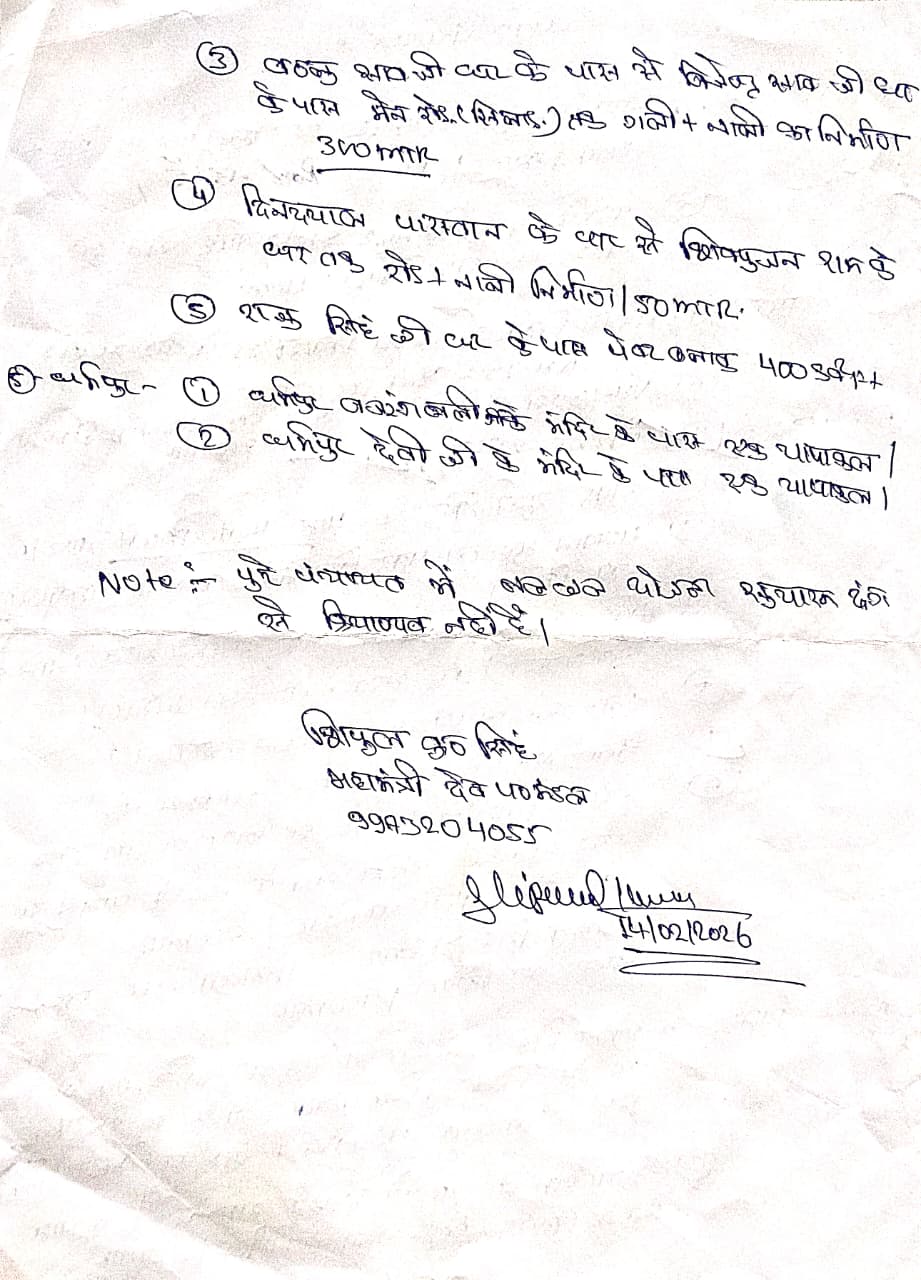 ③ लठनु साव जी घर के पास से विजेन्द्र साव जी घर
के पास मेन रोड (सिन्नाड.) तक गली + नाली का निर्माण
300 MTR
④ दिनदयाल पासवान के घर से शिवपुजन राम के
घर तक रोड + नाली निर्माण । 50 MTR.
⑤ राजु सिंह जी घर के पास चबुतरा 400
⑥ धर्मपुर - ① धर्मपुर बजरंगबली के मंदिर के पास एक चापाकल ।
② धर्मपुर देवी जी के मंदिर के पास एक चापाकल ।
Note :- पुरे पंचायत में नल जल योजना सुचारू ढंग
से नहीं है ।
कु० सिंह
महामंत्री देव प० मंडल
9973204055
14/02/2026